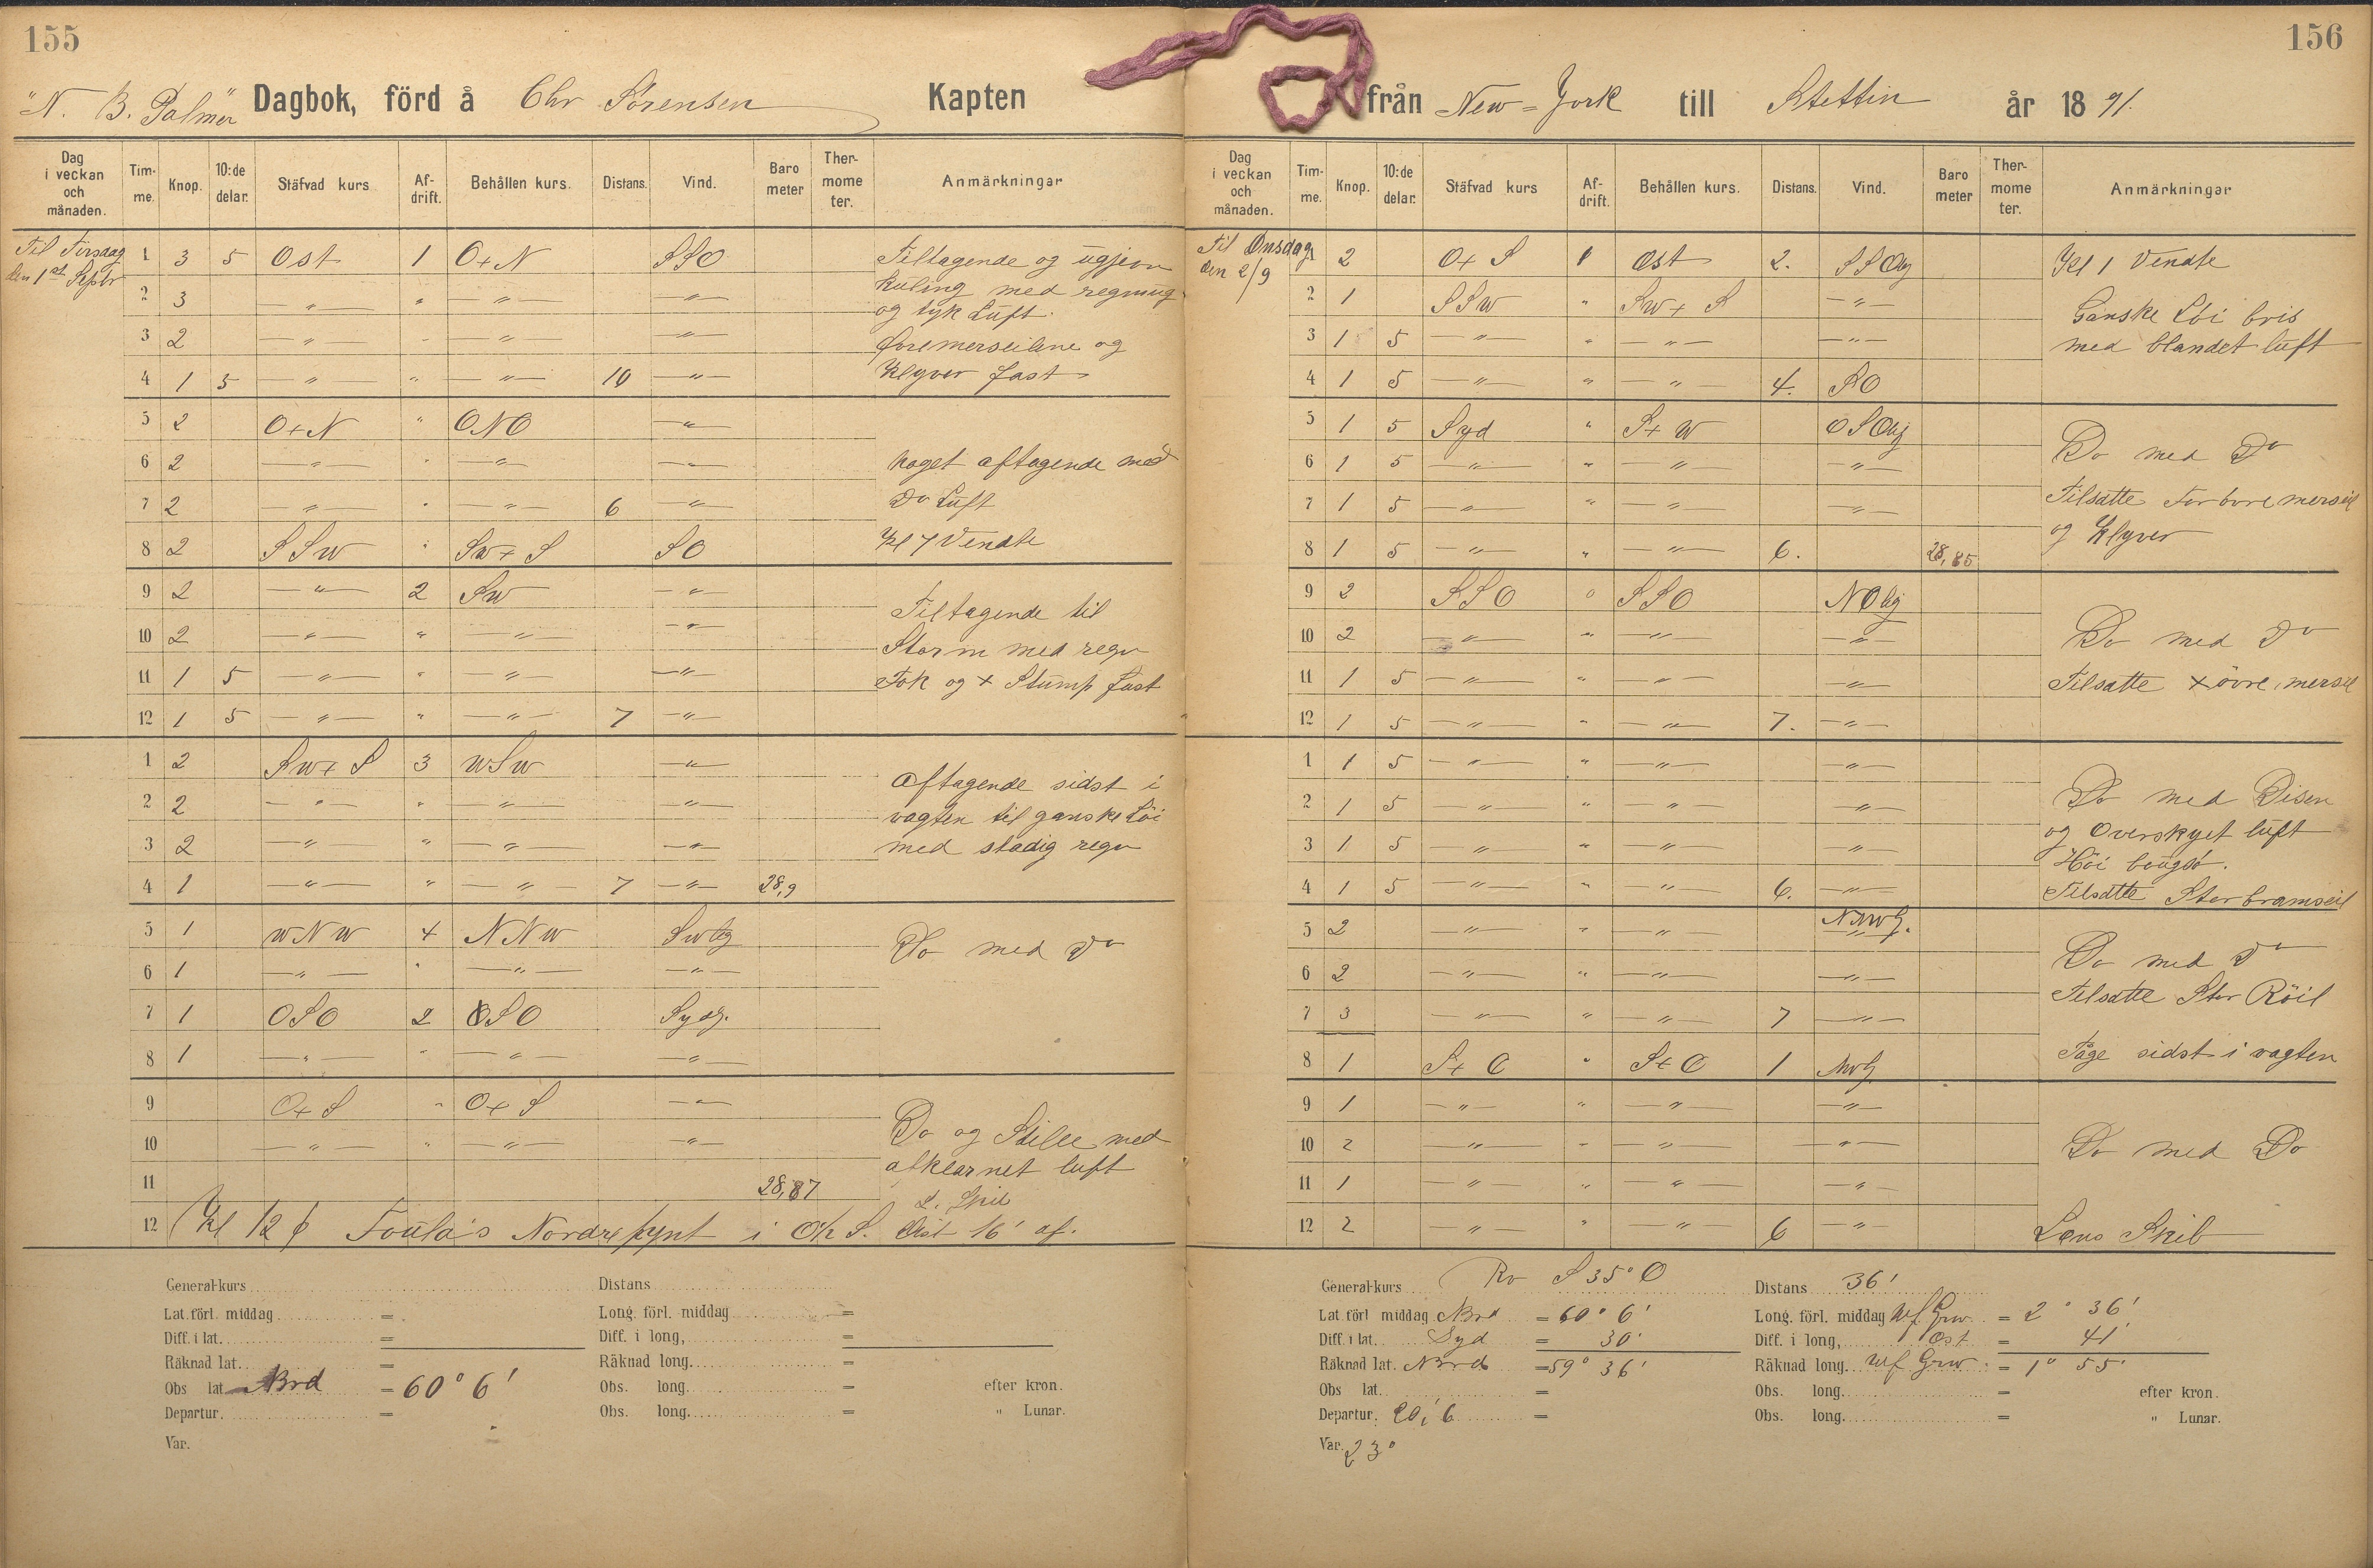 155
"N. B. Palmer" Dagbok, förd å Chr Sørensen Kapten
Dag i veckan och månaden. Tim-me. Knop. 10:de delar. Stäfvad kurs Af-drift. Behållen kurs. Distans. Vind. Baro meter Ther-mome ter. Anmärkningar
Til Tirsdag 1 3 5 Ost 1 O+N SSO Tiltagende og ugjevn
den 1st Septbr
2 3 " " " " kuling med regning
og tyk Luft.
3 2 " " " " foremerseilene og
4 1 5 " " " 10 " Klyver fast
5 2 O+N " ONO "
6 2 " " " " Noget aftagende med
7 2 " " " 6 " Do Luft
8 2 SSW " SW+S SO Kl 7 Vendte
9 2 " 2 SW " Tiltagende til
10 2 " " " " Storm med regn
11 1 5 " " " " Fok og + Stump fast
12 1 5 " " " 7 "
1 2 SW+S 3 WSW " Aftagende sidst i
2 2 " " " " vagten til ganske Löi
3 2 " " " " med stadig regn
4 1 " " " 7 " 28,9
5 1 WNW 4 NNW SWlig Do med Do
6 1 " " " "
7 1 OSO 2 OSO Sydlg.
8 1 " " " "
9 O+S " O+S "
10 " " " " Do og Stille med
afklarnet luft
11 28,87 L. Skib
12 Kl 12 p Foula's Nordre pynt i O½S. Dist 16' af.
General-kurs Distans
Lat. förl. middag = Long. förl. middag =
Diff. i lat. = Diff. i long, =
Räknad lat. = Räknad long. =
Obs lat. Nord = 60° 6' Obs. long. = efter kron.
Departur. = Obs. long. = " Lunar.
Var.
156
från New=York till Stettin år 18 91.
Dag i veckan och månaden. Tim-me. Knop. 10:de delar. Stäfvad kurs Af-drift. Behållen kurs. Distans. Vind. Baro meter Ther-mome ter. Anmärkningar
Til Onsdag 1 2 O+S 1 Ost 2. SSOlg Kl 1 Vendte
den 2/9
2 1 SSW " SW+S " Ganske Löi bris
3 1 5 " " " " med blandet luft
4 1 5 " " " 4. SO
5 1 5 Syd " S+W OSOlig
6 1 5 " " " " Do med Do
7 1 5 " " " " Tilsatte Forövre merseil
8 1 5 " " " 6. 28,85 og Klyver
9 2 SSO 0 SSO NOlig
10 2 " " " " Do med Do
11 1 5 " " " " Tilsatte + övre merseil
12 1 5 " " " 7. "
1 1 5 " " " "
2 1 5 " " " " Do med Disen
og Overskyet luft
3 1 5 " " " " Höi bougsö.
4 1 5 " " " 6. " Tilsatte Storbramseil
5 2 " " " NNWlg.
6 2 " " " " Do med Do
7 3 " " " 7 " Tilsatte Stor Röil
8 1 S+O " S+O 1 NWlg Tåge sidst i vagten
9 1 " " " "
10 2 " " " " Do med Do
11 1 " " " "
12 2 " " " 6 " Læns Skib
General-kurs Rv S 35° O Distans 36'
Lat. förl middag Nord = 60° 6' Long. förl. middag Wf Grw. = 2° 36'
Diff. i lat. Syd = 30' Diff. i long, Ost = 41'
Räknad lat. Nord = 59° 36' Räknad long. Wf Grw. = 1° 55'
Obs lat. = Obs. long. = efter kron.
Departur. 20,6 = Obs. long. = " Lunar.
Var. 23°